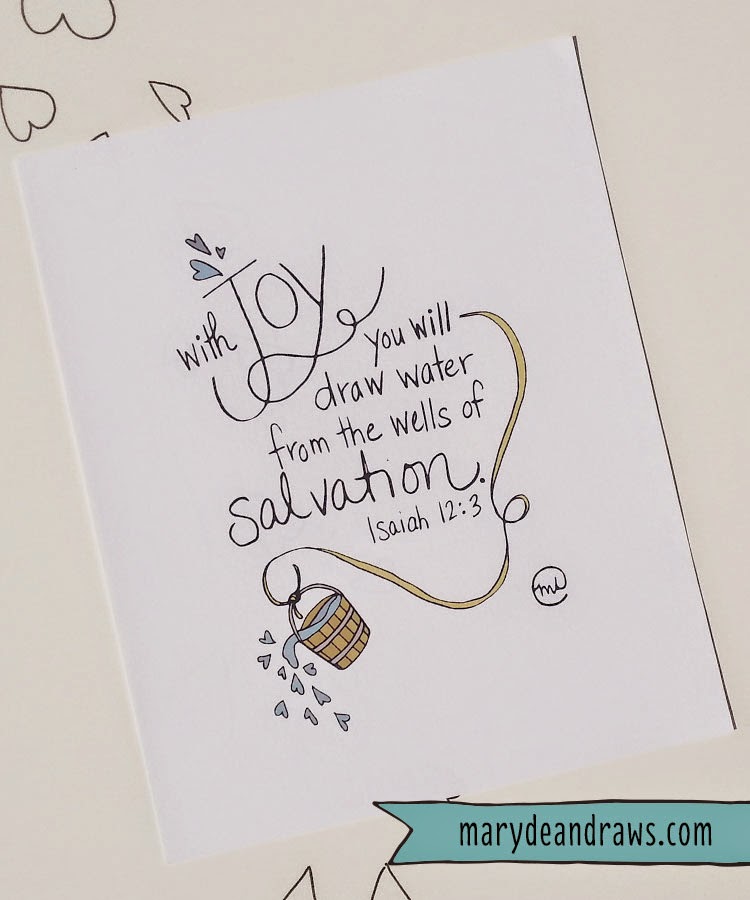 with Joy
you will
draw water
from the wells of
salvation.
Isaiah 12:3
md
marydeandraws.com